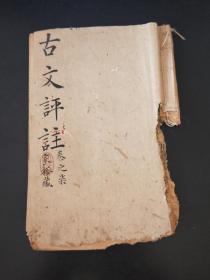 古文評註
卷之柒